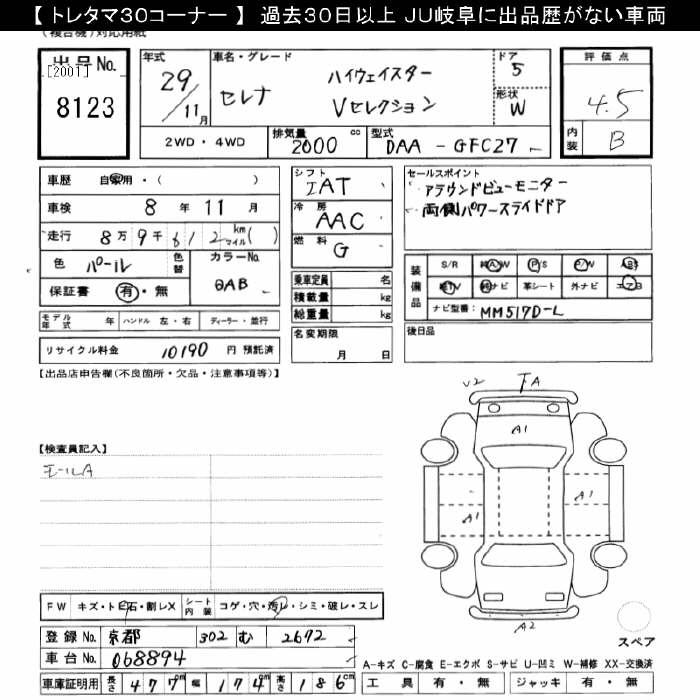 【トレタマ30コーナー】 過去30日以上 JU岐阜に出品歴がない車両
出品No.
[2001]
8123
年式 29/11月
車名・グレード
セレナ
ハイウェイスター
Vセレクション
ドア 5
形状 W
評価点
4.5
内装 B
2WD・4WD
排気量 2000 cc
型式 DAA-GFC27
車歴 自家用・( )
車検 8年 11月
走行 8万9千612 km マイル( )
色 パール
色替
カラーNo. QAB
保証書 有・無
モデル年式 年 ハンドル 左・右 ディーラー・並行
リサイクル料金 10190 円 預託済
シフト IAT
冷房 AAC
燃料 G
乗車定員 名
積載量 kg
総重量 kg
名変期限
月 日
セールスポイント
アラウンドビューモニター
両側パワースライドドア
装備品
S/R 純AW P/S P/W ABS
純TV 純ナビ 革シート 外ナビ エアB
ナビ型番: MM517D-L
後日品
【出品店申告欄(不良箇所・欠品・注意事項等)】
【検査員記入】
モールA
V2 FA
A1
A1
A1
A2
スペア
FW キズ・トビ石・割レX
シート内装 コゲ・穴・汚レ・シミ・破レ・スレ
登録No. 京都 302 む 2672
車台No. 068894
車庫証明用 長さ 477cm 幅 174cm 高さ 186cm
A-キズ C-腐食 E-エクボ S-サビ U-凹ミ W-補修 XX-交換済
工具 有・無 ジャッキ 有・無